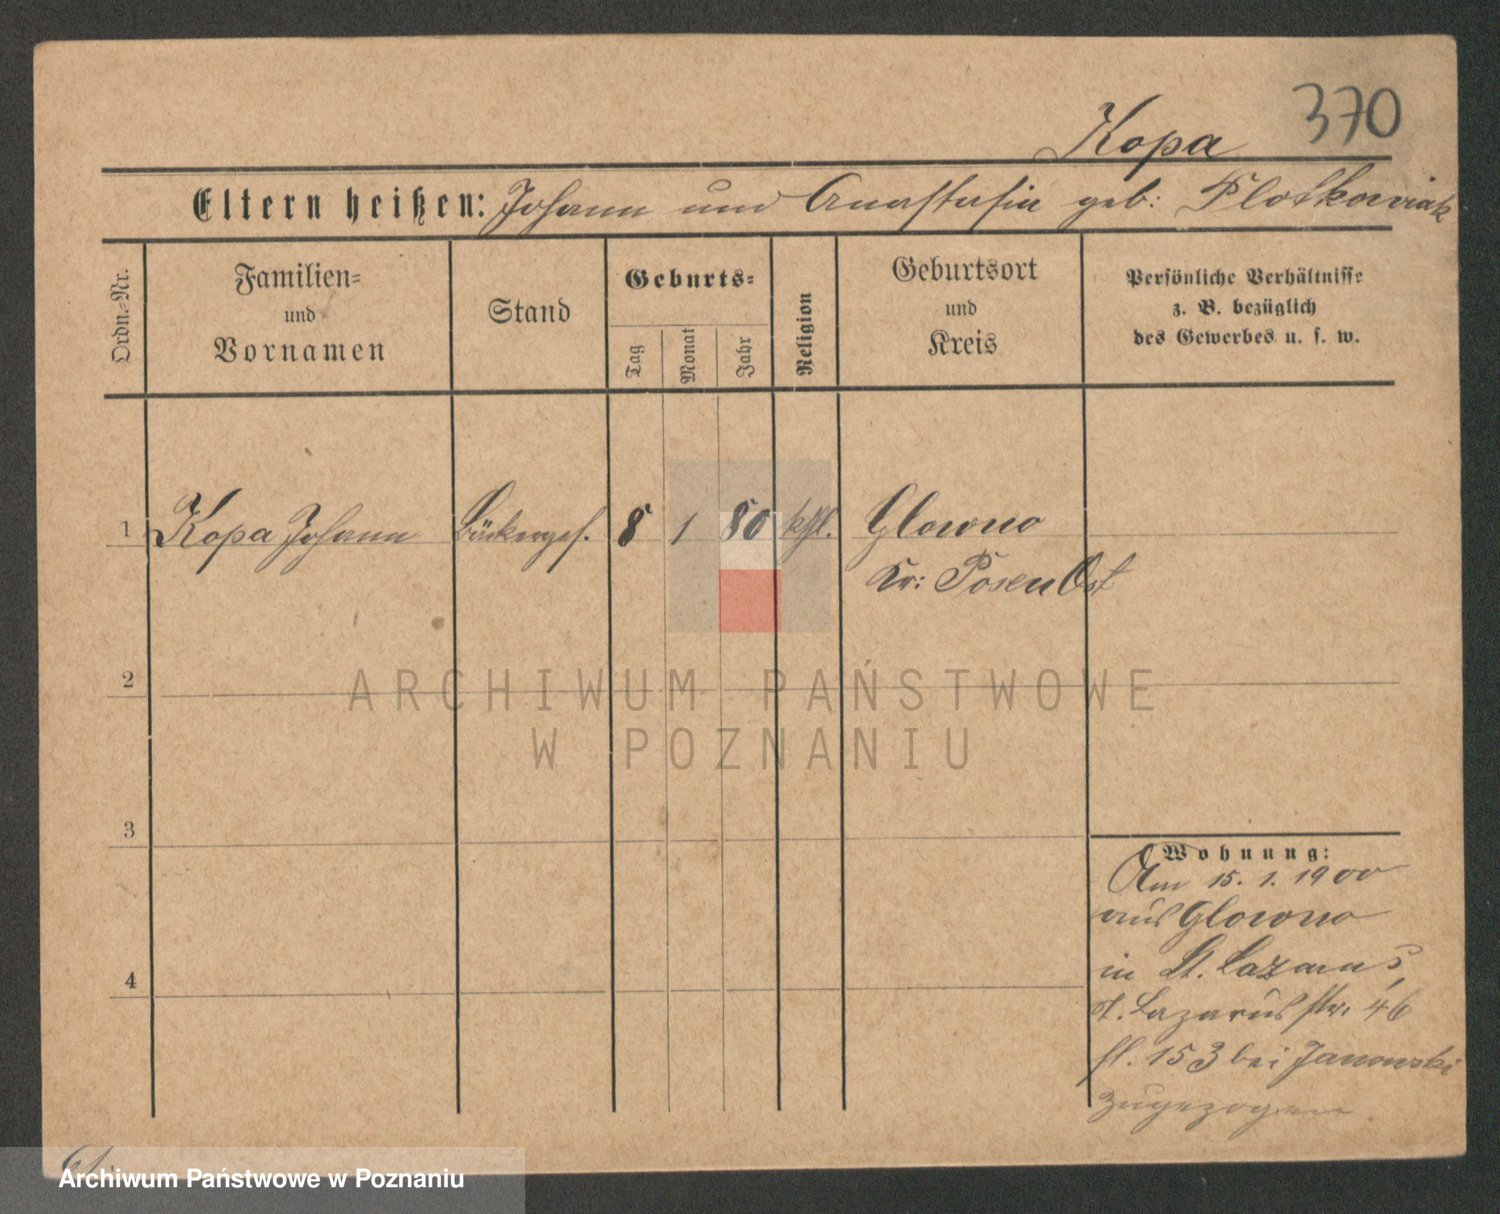 370
Kopa
Eltern heißen: Johann und Anastasia geb: Ploskowiak
Ordn.-Nr.
Familien-
und
Vornamen
Stand
Geburts-
Tag
Monat
Jahr
Religion
Geburtsort
und
Kreis
Persönliche Verhältnisse
z. B. bezüglich
des Gewerbes u. s. w.
1 Kopa Johann Bäckerges. 8 1 80 kthl. Glowno
Kr: Posen Ost
2
ARCHIWUM PAŃSTWOWE
W POZNANIU
3
4
Wohnung:
Am 15. 1. 1900
aus Glowno
in St. Lazarus,
St. Lazarus str. 46
bei Janowski
zugezogen.
Archiwum Państwowe w Poznaniu